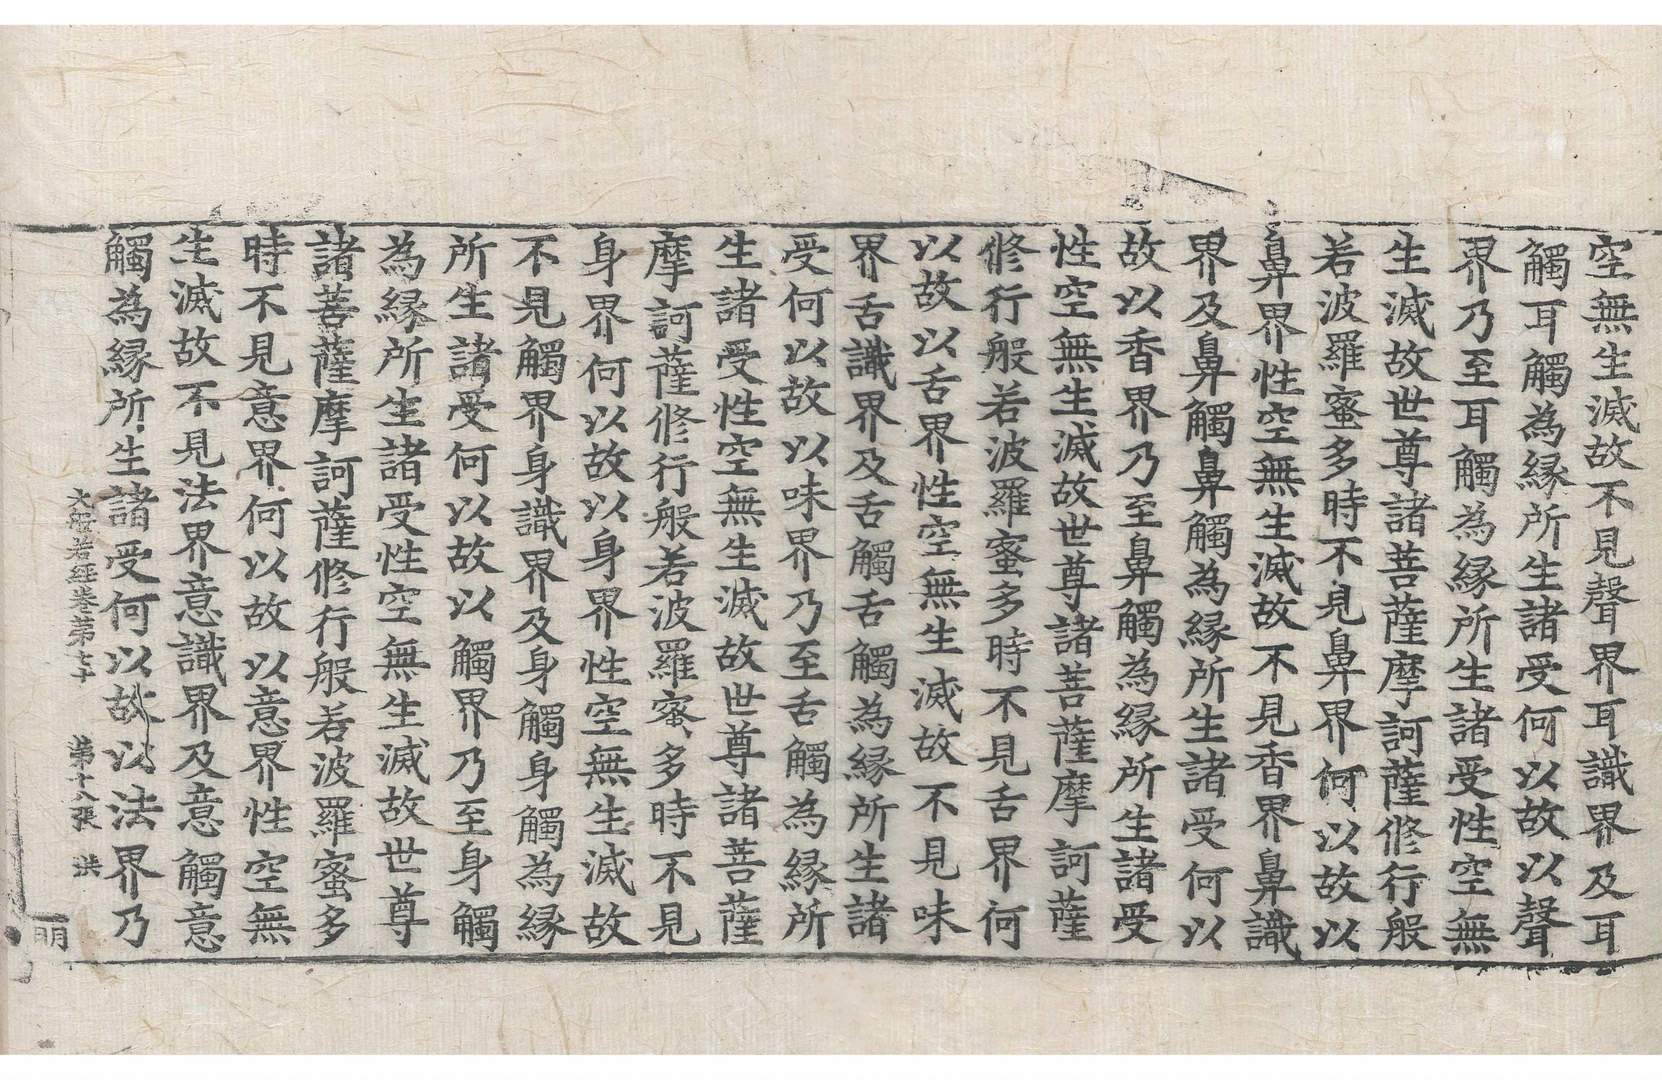 空無生滅故不見聲界耳識界及耳
觸耳觸為縁所生諸受何以故以聲
界乃至耳觸為縁所生諸受性空無
生滅故世尊諸菩薩摩訶薩修行般
若波羅蜜多時不見鼻界何以故以
鼻界性空無生滅故不見香界鼻識
界及鼻觸鼻觸為縁所生諸受何以
故以香界乃至鼻觸為縁所生諸受
性空無生滅故世尊諸菩薩摩訶薩
修行般若波羅蜜多時不見舌界何
以故以舌界性空無生滅故不見味
界舌識界及舌觸舌觸為縁所生諸
受何以故以味界乃至舌觸為縁所
生諸受性空無生滅故世尊諸菩薩
摩訶薩修行般若波羅蜜多時不見
身界何以故以身界性空無生滅故
不見觸界身識界及身觸身觸為縁
所生諸受何以故以觸界乃至身觸
為縁所生諸受性空無生滅故世尊
諸菩薩摩訶薩修行般若波羅蜜多
時不見意界何以故以意界性空無
生滅故不見法界意識界及意觸意
觸為縁所生諸受何以故以法界乃
大般若經卷第七十 第十八張 洪